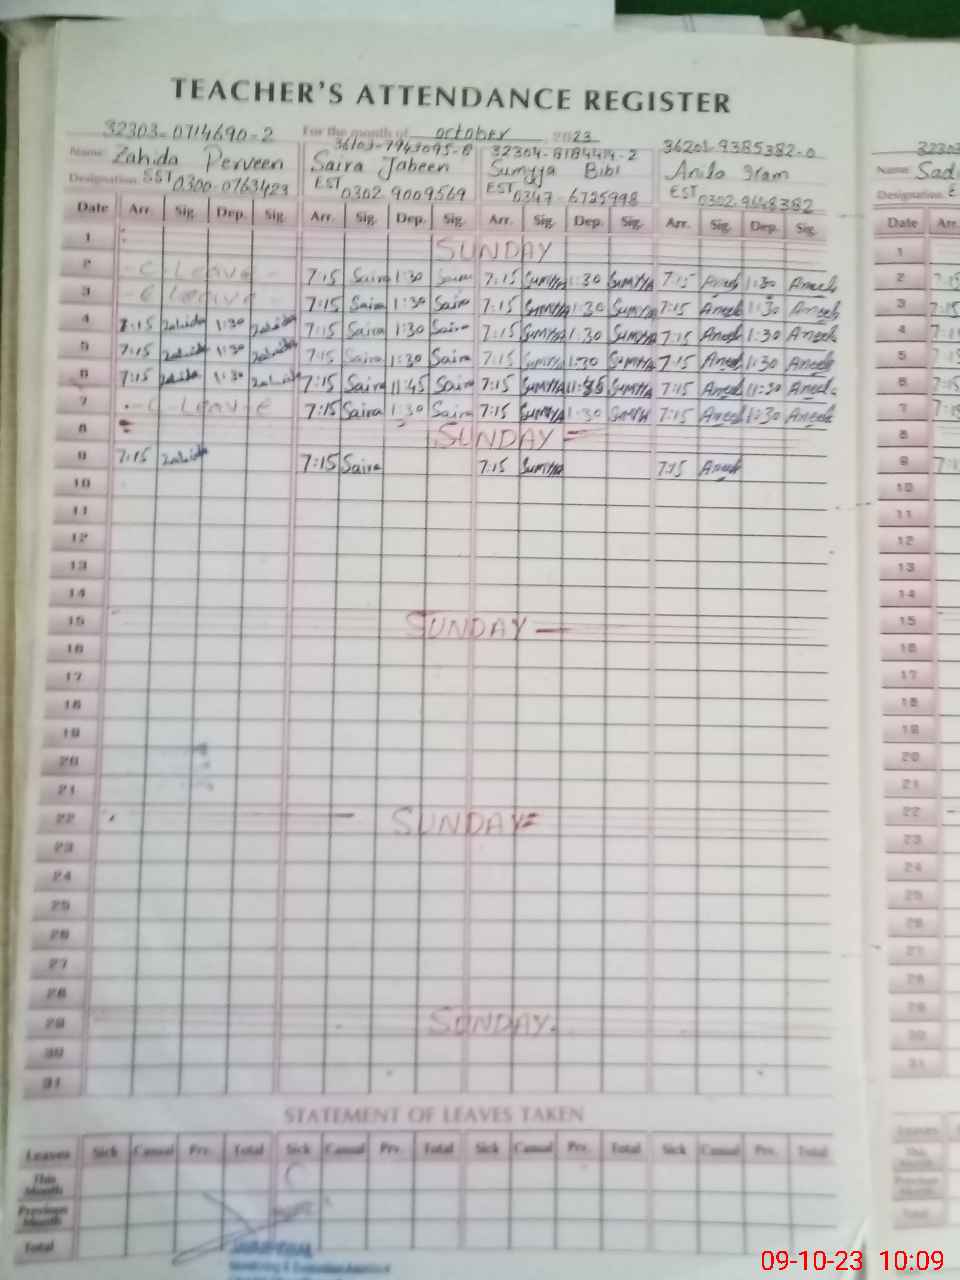 TEACHER'S ATTENDANCE REGISTER
32303-0714690-2 For the month of october 2023
36103-7943095-8 32304-8184414-2 36201-9385382-0 32303
Name Zahida Perveen Saira Jabeen Sumyya Bibi Anila Iram Name Sadi
Designation SST 0300-0763423 EST 0302 9009569 EST 0347-6725998 EST 0302-9648382 Designation E
Date Arr. Sig. Dep. Sig. Arr. Sig. Dep. Sig. Arr. Sig. Dep. Sig. Arr. Sig. Dep. Sig. Date Arr.
1 SUNDAY 1
2 - C Leave - 7:15 Saira 1:30 Saira 7:15 Sumyya 1:30 Sumyya 7:15 Aneela 1:30 Aneela 2 7:15
3 - C Leave - 7:15 Saira 1:30 Saira 7:15 Sumyya 1:30 Sumyya 7:15 Aneela 1:30 Aneela 3 7:15
4 7:15 Zahida 1:30 Zahida 7:15 Saira 1:30 Saira 7:15 Sumyya 1:30 Sumyya 7:15 Aneela 1:30 Aneela 4 7:1
5 7:15 Zahida 1:30 Zahida 7:15 Saira 1:30 Saira 7:15 Sumyya 1:30 Sumyya 7:15 Aneela 1:30 Aneela 5 7:1
6 7:15 Zahida 11:30 Zahida 7:15 Saira 11:45 Saira 7:15 Sumyya Sumyya 7:15 Aneela 11:30 Aneela 6 7:15
7 - C Leave 7:15 Saira 1:30 Saira 7:15 Sumyya 1:30 Sumyya 7:15 Aneela 1:30 Aneela 7 7:1
8 SUNDAY 8
9 7:15 Zahida 7:15 Saira 7:15 Sumyya 7:15 Aneela 9 7:1
10 10
11 11
12 12
13 13
14 14
15 SUNDAY 15
16 16
17 17
18 18
19 19
20 20
21 21
22 SUNDAY 22
23 23
24 24
25 25
26 26
27 27
28 28
29 SUNDAY 29
30 30
31 31
STATEMENT OF LEAVES TAKEN
Leaves Sick Casual Prv. Total Sick Casual Prv. Total Sick Casual Prv. Total Sick Casual Prv. Total Leaves
This Month This Month
Previous Month Previous Month
Total Total
09-10-23 10:09